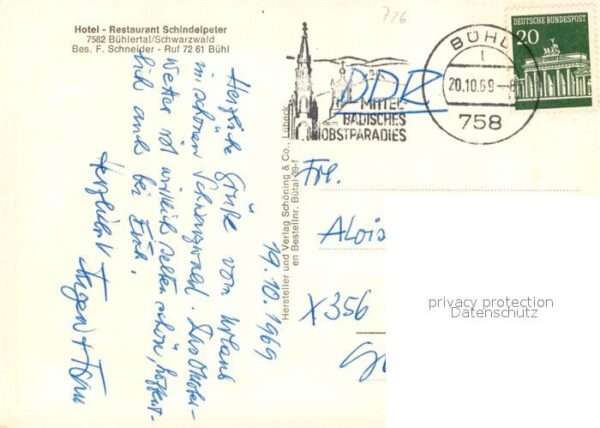 726
Hotel - Restaurant Schindelpeter
7582 Bühlertal/Schwarzwald
Bes. F. Schneider - Ruf 72 61 Bühl
DEUTSCHE BUNDESPOST
20
BÜHL
1
20.10.69
758
DDR
MITTEL-
BADISCHES
OBSTPARADIES
Hersteller und Verlag Schöning & Co., Lübeck
en Bestellnr. Bütal 39-f
19.10.1969
Herzliche Grüße vom Urlaub
im schönen Schwarzwald. Das Oktober-
wetter ist wirklich selten schön, hoffent-
lich auch bei Euch.
Herzlichst
Frl.
Alois
X356
privacy protection
Datenschutz